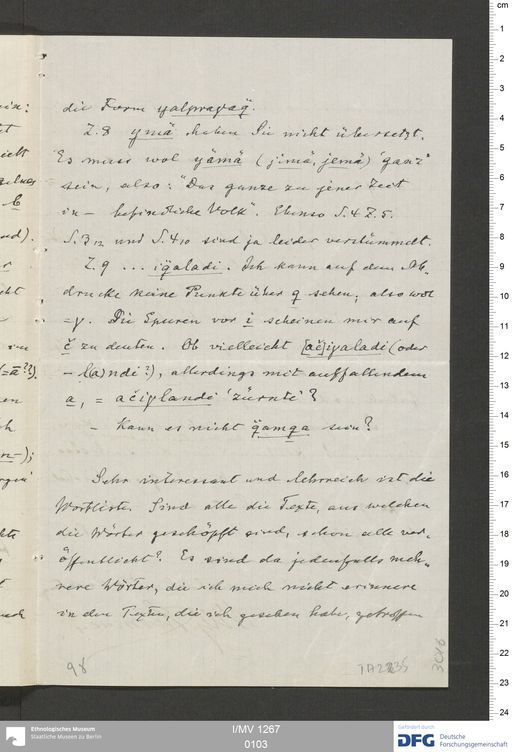 die Form yalwaγaq̈.
Z. 8 ymä haben Sie nicht übersetzt.
Es muss wol yämä (jimä, jemä) 'ganz'
sein, also: "Das ganze zu jener Zeit
in – befindliche Volk". Ebenso S. 4 Z. 5.
S. 3 12 und S. 4 10 sind ja leider verstümmelt.
Z. 9 ... iq̈aladi. Ich kann auf dem Ab-
drucke keine Punkte über q sehen, also wol
= γ. Die Spuren vor i scheinen mir auf
č zu deuten. Ob vielleicht [ač]iγaladi (oder
– l(a)ndi?), allerdings mit auffallendem
a, = ačiγlandi 'zürnte'?
– Kann es nicht q̈amqa sein?
Sehr interessant und lehrreich ist die
Wortliste. Sind alle die Texte, aus welchen
die Wörter geschöpft sind, schon alle ver-
öffentlicht? Es sind da jedenfalls meh-
rere Wörter, die ich mich nicht erinnere
in den Texten, die ich gesehen habe, getroffen
98
3046
Ethnologisches Museum
Staatliche Museen zu Berlin
I/MV 1267
0103
Gefördert durch
DFG Deutsche
Forschungsgemeinschaft
cm
1
2
3
4
5
6
7
8
9
10
11
12
13
14
15
16
17
18
19
20
21
22
23
24